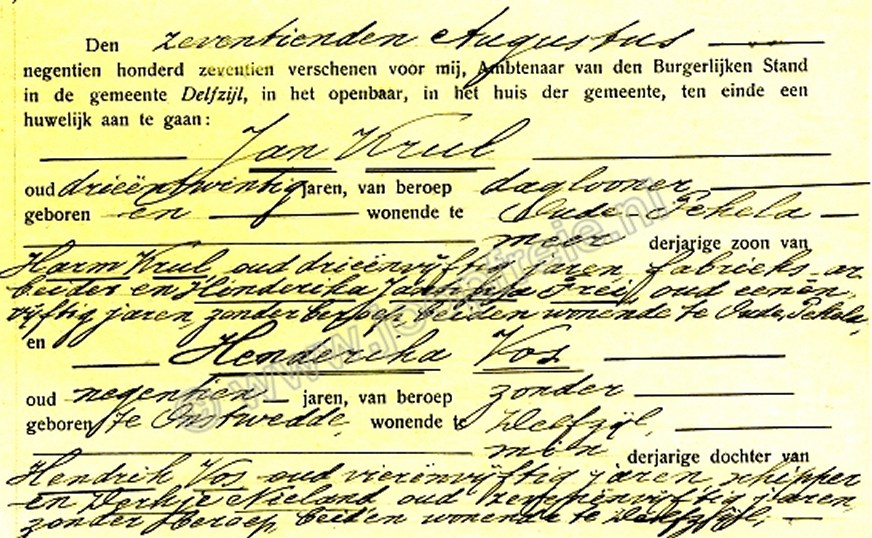 Den zeventienden Augustus
negentien honderd zeventien verschenen voor mij, Ambtenaar van den Burgerlijken Stand
in de gemeente Delfzijl, in het openbaar, in het huis der gemeente, ten einde een
huwelijk aan te gaan:
Jan Krul
oud drieëntwintig jaren, van beroep daglooner
geboren en wonende te Oude-Pekela
meer derjarige zoon van
Harm Krul, oud drieënvijftig jaren, fabrieks-ar
beider en Hinderika Frei, oud eenen
vijftig jaren, zonder beroep, beiden wonende te Oude Pekela,
en
Henderika Vos
oud negentien jaren, van beroep zonder
geboren te Onstwedde, wonende te Delfzijl,
min derjarige dochter van
Hendrik Vos oud vierenvijftig jaren, schipper
en Derkje Nieland, oud zevenenvijftig jaren
zonder beroep, beiden wonende te Delfzijl;
© www.jooptreie.nl